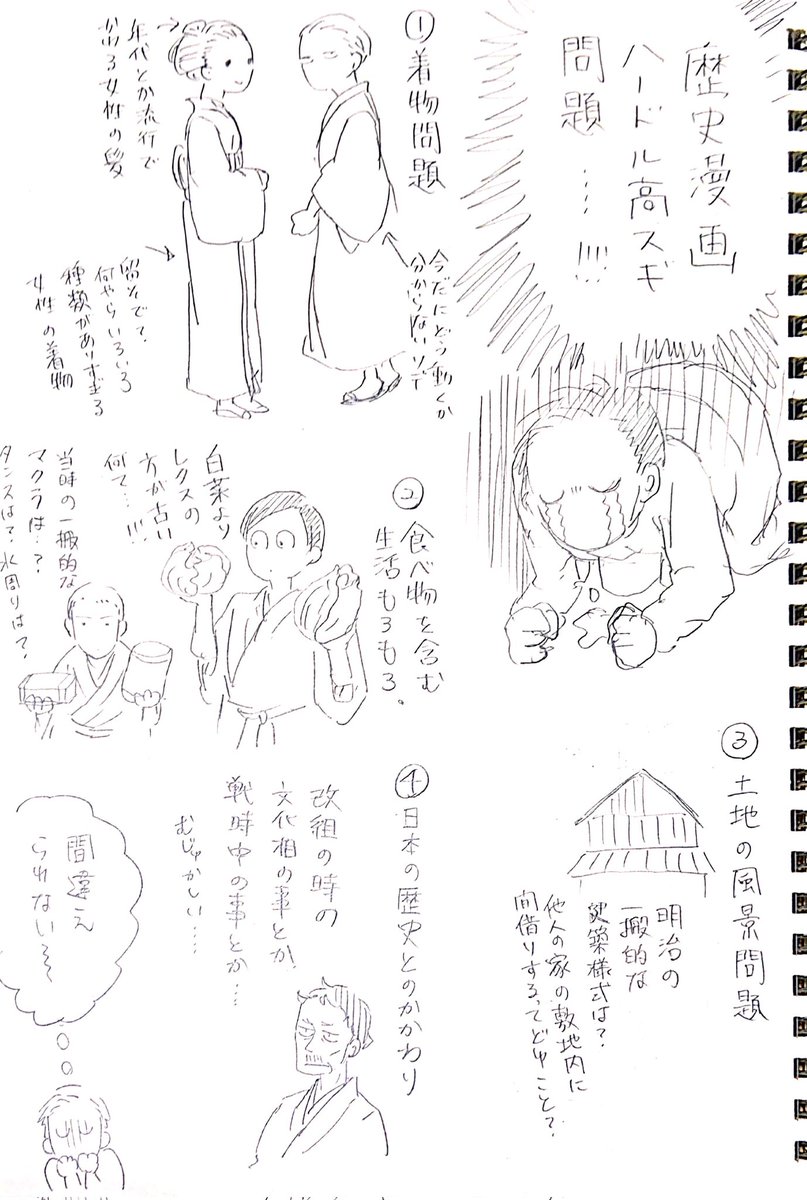 歴史漫画
ハードル高スギ
問題……!!!!
①着物問題
今だにどう動くか
分からないソデ
年代とか流行で
かわる女性の髪
留そで?
何やらいろいろ
種類がありすぎる
女性の着物
②食べ物を含む
生活もろもろ。
白菜より
レタスの
方が古い
何て…!!!
当時の一搬的な
マクラは…?
タンスは?水周りは?
③土地の風景問題
明治の
一搬的な
建築様式は?
他人の家の敷地内に
間借りするってどゆこと?
④日本の歴史とのかかわり
改組の時の
文化相の事とか
戦時中の事とか…
むじゅかしい……
間違え
られない〜